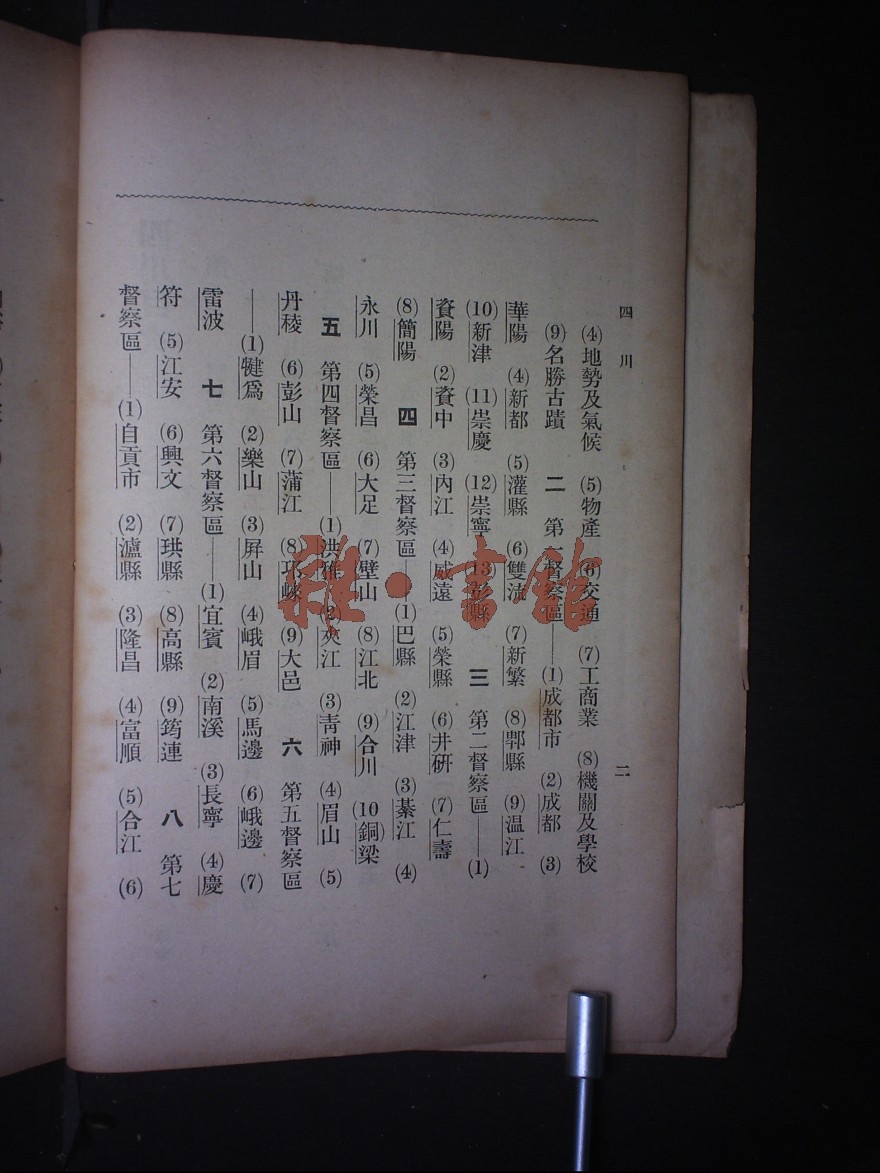 四川
二
(4)地勢及氣候 (5)物產 (6)交通 (7)工商業 (8)機關及學校
(9)名勝古蹟 二 第一督察區——(1)成都市 (2)成都 (3)
華陽 (4)新都 (5)灌縣 (6)雙流 (7)新繁 (8)郫縣 (9)温江
(10)新津 (11)崇慶 (12)崇寧 (13)彭縣 三 第二督察區——(1)
資陽 (2)資中 (3)內江 (4)威遠 (5)榮縣 (6)井研 (7)仁壽
(8)簡陽 四 第三督察區——(1)巴縣 (2)江津 (3)綦江 (4)
永川 (5)榮昌 (6)大足 (7)璧山 (8)江北 (9)合川 (10)銅梁
五 第四督察區——(1)洪雅 (2)夾江 (3)青神 (4)眉山 (5)
丹稜 (6)彭山 (7)蒲江 (8)邛崍 (9)大邑 六 第五督察區
——(1)犍爲 (2)樂山 (3)屏山 (4)峨眉 (5)馬邊 (6)峨邊 (7)
雷波 七 第六督察區——(1)宜賓 (2)南溪 (3)長寧 (4)慶
符 (5)江安 (6)興文 (7)珙縣 (8)高縣 (9)筠連 八 第七
督察區——(1)自貢市 (2)瀘縣 (3)隆昌 (4)富順 (5)合江 (6)
雜·書館